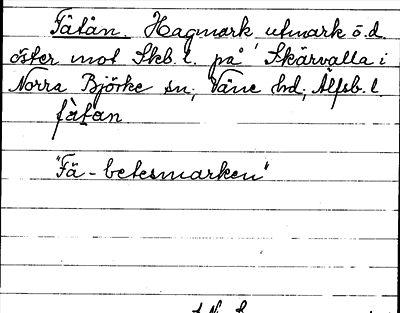 Fåtån. Hagmark utmark ö.d.
öster mot Skb. l. på Skärvalla i
Norra Björke sn; Väne hd; Älfsb. l.
fåtan
"Fä-betesmarken"